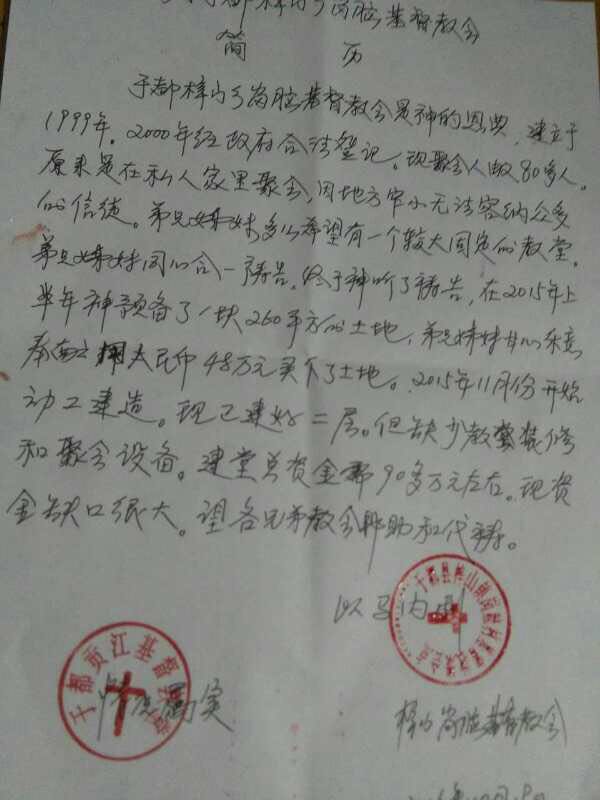 都梓山乡岗脑基督教会
简 历
于都梓山乡岗脑基督教会是神的恩典，建立于
1999年。2000年经政府合法登记。现聚会人数80多人。
原来是在私人家里聚会，因地方窄小无法容纳众多
的信徒。弟兄姊妹多么希望有一个较大固定的教堂。
弟兄姊妹同心合一祷告。终于神听了祷告，在2015年上
半年神预备了一块260平方的土地，弟兄姊妹甘心乐意
奉献 用人民币48万元买下了土地。2015年11月份开始
动工建造。现已建好二层。但缺少教堂装修
和聚会设备。建堂总资金需90多万元左右。现资
金缺口很大。望各兄弟教会帮助和代祷。
以马内利
于都县梓山镇岗脑村基督教
于都贡江基督教
情况属实
梓山岗脑基督教会